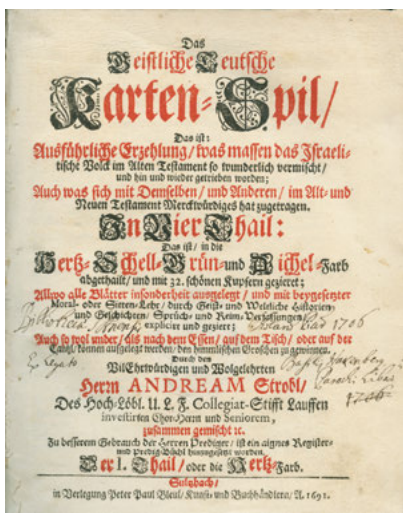 Das
Geistliche Teutsche
Karten-Spil/
Das ist:
Ausführliche Erzehlung/ was massen das Israeli-
tische Volck im Alten Testament so wunderlich vermischt/
und hin und wieder getrieben worden;
Auch was sich mit Demselben/ und Anderen/ im Alt- und
Neuen Testament Merckwürdiges hat zugetragen.
In Vier Thail:
Das ist/ in die
Hertz-Schell-Grün- und Aichel-Farb
abgethailt/ und mit 32. schönen Kupfern gezieret;
Allwo alle Blätter insonderheit ausgelegt/ und mit beygesetzter
Moral- oder Sitten-Lehr/ durch Geist- und Weltliche Historien
und Geschichten/ Sprüch- und Reim-Verfassungen/
explicirt und geziert;
Auch so wol under/ als nach dem Essen/ auf dem Tisch/ oder auf der
Cantzl/ können aufgelegt werden/ den himmlischen Groschen zu gewinnen.
Durch den
VilEhrwürdigen und Wolgelehrten
Herrn ANDREAM Strobl/
Des Hoch-Löbl. U. L. F. Collegiat-Stifft Lauffen
investirten Chor-Herrn und Seniorem,
zusammen gemischt ꝛc.
Zu besserem Gebrauch der Herren Prediger/ ist ein aignes Register-
und Predig-Büchl hinzugesetzt worden.
Der I. Thail/ oder die Hertz-Farb.
Sultzbach/
in Verlegung Peter Paul Bleul/ Kunst- und Buchhändlern/ A. 1691.